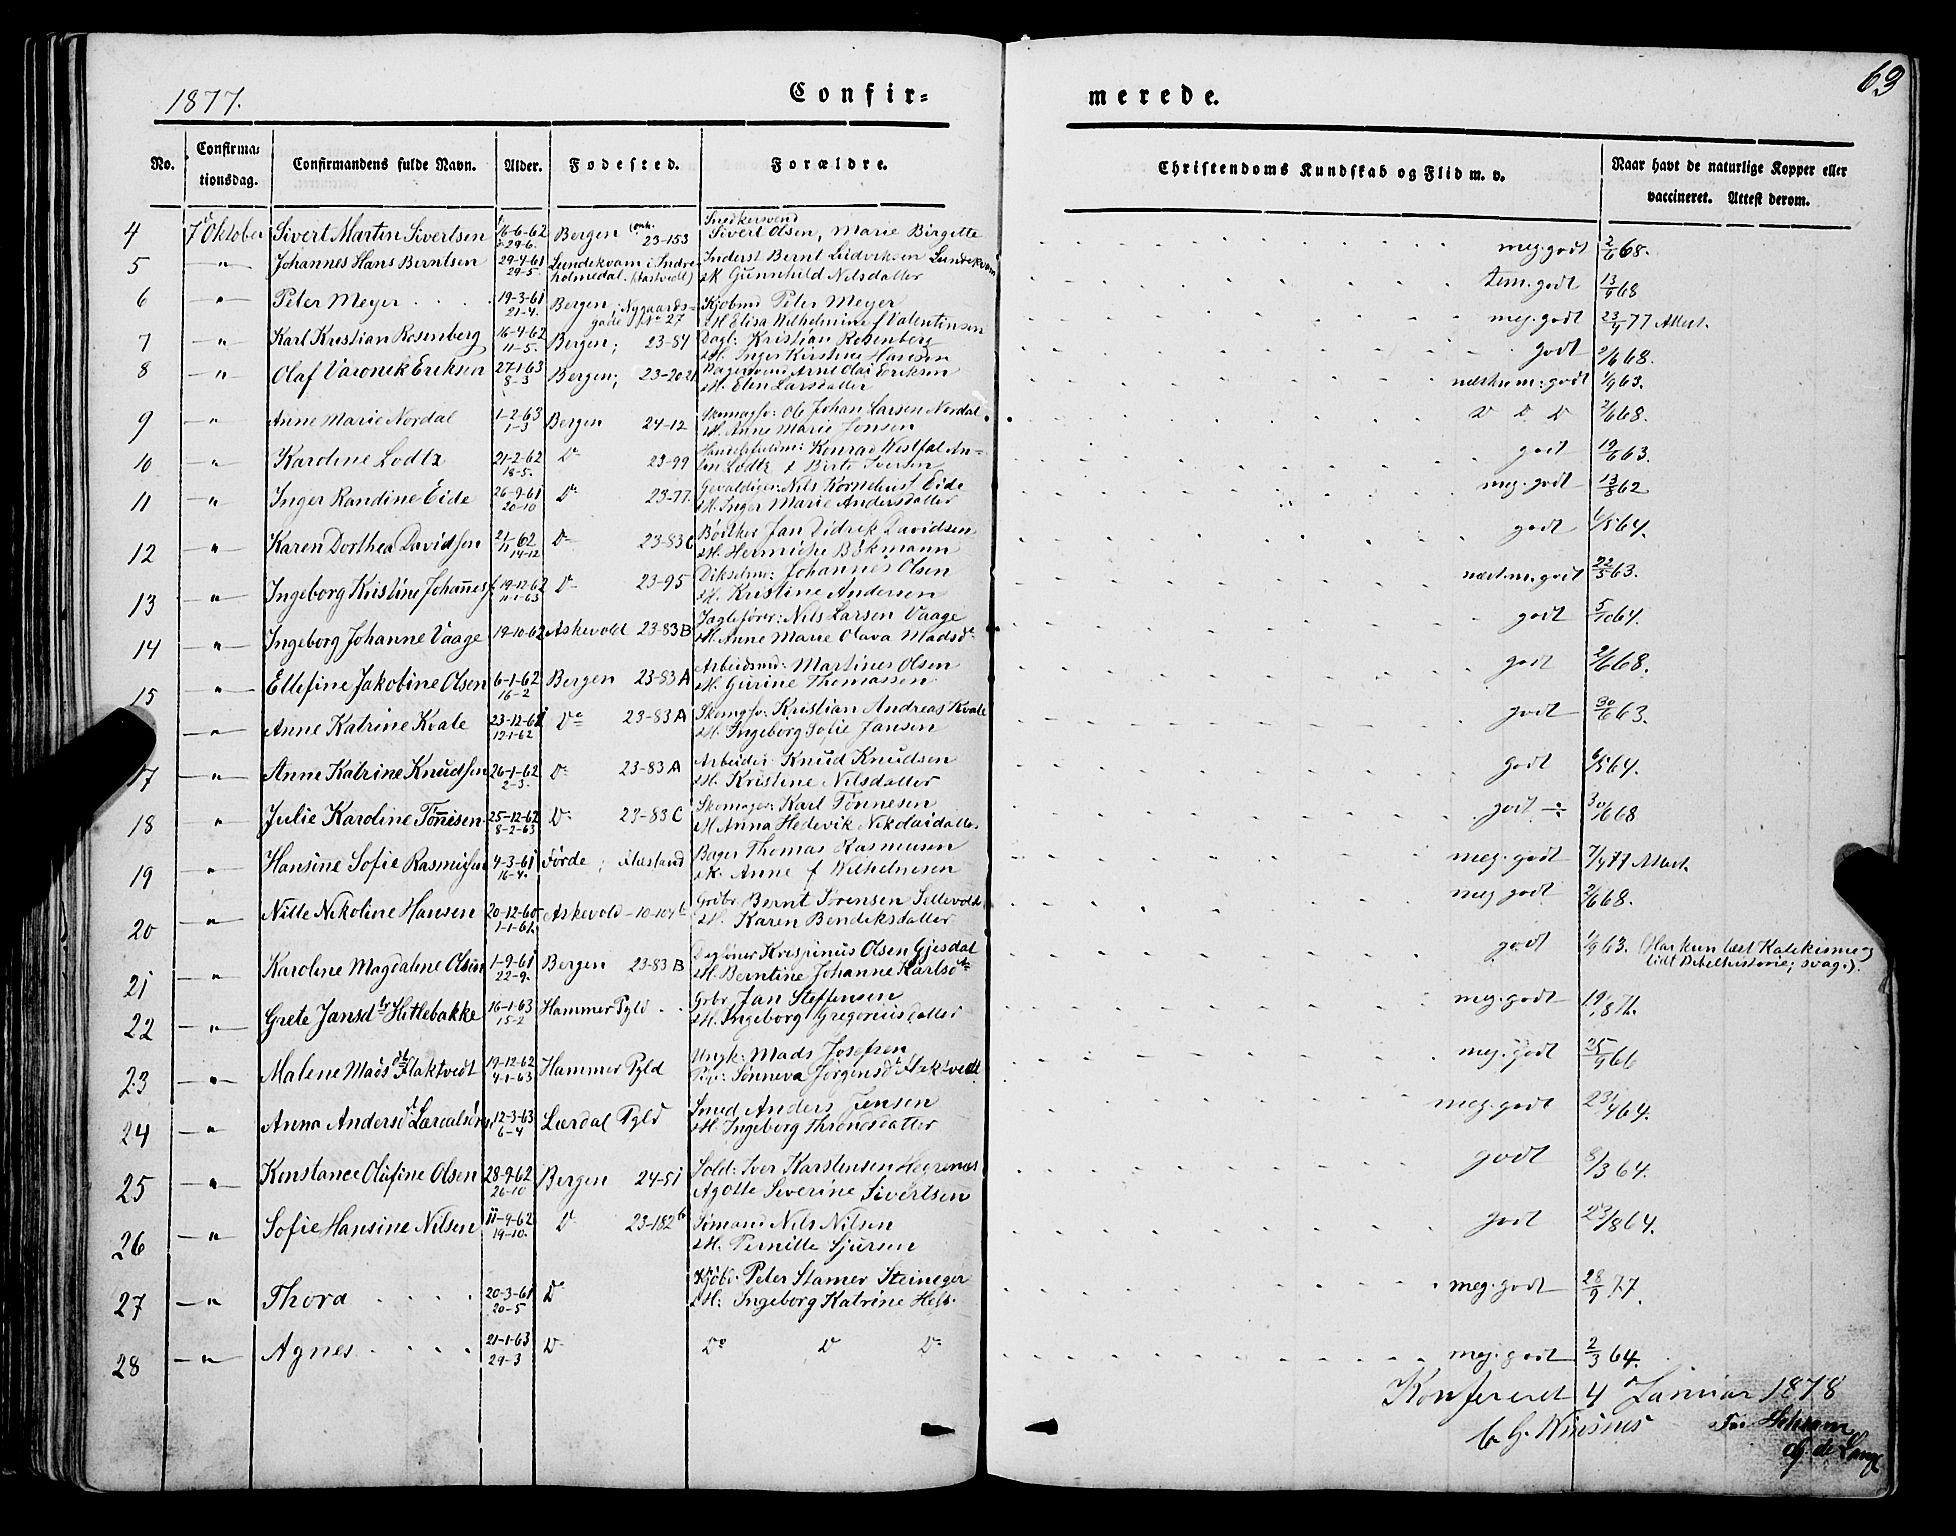 1877.
Confir=
merede.
63
No.
Confirma=
tionsdag.
Confirmandens fulde Navn.
Alder.
Fødested.
Forældre.
Christendoms Kundskab og Flid m. v.
Naar havt de naturlige Kopper eller
vaccineret. Attest derom.
4 7 Oktober Sivert Martin Sivertsen 16-6-62 29-6. Bergen 23-153 Snedkersvend Sivert Olsen, Marie Birgitte meg. godt 2/6 68.
5 -"- Johannes Hans Berntsen 29-4-61 29-5. Lundekvam i Indre holmedal. Inderst Bernt Ludviksen Lundekvam & H. Gunnhild Nilsdatter tem. godt 13/9 68
6 -"- Peter Meyer 19-3-61 21-4. Bergen, Nygaards= gade No 27 Kjøbmd Peter Meyer & H. Elisa Wilhelmine f Valentinsen meg. godt 23/4 77 Attest.
7 -"- Karl Kristian Rosenberg 16-4-62 11-5. Bergen; 23-84 Dagl: Kristian Rosenberg & H. Inger Kirstine Hansen godt 2/6 68.
8 -"- Olaf Eriksen 27-1-63 8-3 Bergen; Arnt Olai Eriksen & H. Elen Larsdatter godt 1/9 63.
9 -"- Anne Marie Nordal 1-2-63 1-3 Bergen 24-12 Skomagsv: Ole Johan Larsen Nordal & H. Anne Marie Jensen D D D 2/6 68.
10 -"- Karoline Lodtz 21-2-62 18-5. Do 23-99 Konrad Westfal An= Lodtz & Birte Iversen godt 19/6 63.
11 -"- Inger Randine Eide 26-9-61 20-10 Do 23-77. Gevaldiger: Nils Eide & H. Inger Marie Andersdatter meg. godt 13/8 62
12 -"- Karen Dorthea Davidsen 21/11-62 14-12 Do 23-83 C Bødker Jan Didrik Davidsen & H. Henricke Bökmann godt 6/5 64.
13 -"- Ingeborg Kristine 19-12-62 11-1-63 Do 23-95 Johannes Olsen & H. Kristine Andersen næst m. godt 22/5 63.
14 -"- Ingeborg Johanne Vaage 19-10-62 Askevold 23-83 B Jagtefører: Nils Larsen Vaage & H. Anne Marie Olava Madsdr godt 5/10 64.
15 -"- Ellefine Jakobine Olsen 6-1-62 16-2 Bergen 23-83 A Arbeidsmd: Martines Olsen & H. Gurine Thomassen godt 2/6 68.
-"- Anne Katrine Kvale 23-12-61 12-1-62 Do 23-83 A Skomgsv: Kristian Andreas Kvale & H. Ingeborg Sofie Jansen godt 30/6 63.
17 -"- Anne Katrine Knudsen 26-1-62 2-3. Do 23-83 A Arbeider: Knud Knudsen & H. Kristine Nilsdatter godt 6/5 64.
18 -"- Julie Karoline Tönesen 25-12-62 8-2-63 Do 23-83 C Skomager: Karl Tönnesen & H Anna Hedevik Nikolaidatter godt ÷ 30/6 68
19 -"- Hansine Sofie Rasmussen 4-3-61 16-4. Förde; Bager Thomas Rasmussen & H. Anne f Wilhelmsen meg. godt 7/9 77 Attest.
20 -"- Nille Nikoline Hansen 20-12-60 1-1-61. Askevold Grbr Bernt Sörensen & H. Karen Bendiksdatter meg godt 2/6 68.
21 -"- Karoline Magdalene Olsen 1-9-61 22-9. Bergen 23-83 B Krispinus Olsen Gjesdal & H. Berntine Johanne Karlsdtr godt 1/9 63. (Har kun læst Katekisme og lidt Bibelhistorie; svag.).
22 -"- Grete Jansdtr Hitlebakke 16-1-63 15-2 Hammer Pgld Grbr Jan Steffensen & H. Ingeborg Gregoriusdatter meg. godt
23 -"- Malene Madsdtr Flaktvedt 19-12-62 4-1-63 Hammer Pgld Ungk: Mads Josefsen Pige: Sönneva Jörgensdtr Flaktvedt meg. godt 25/9 66
24 -"- Anna Andersdtr 12-3-63 6-4 Lærdal Pgld Smed Anders Jensen & H. Ingeborg Throndsdatter meg. godt 23/4 64.
25 -"- Konstance Olufine Olsen 28-9-62 26-10 Bergen 24-51 Sold: Iver Karstensen Agotte Severine Sivertsen godt 8/3 64.
26 -"- Sofie Hansine Nilsen 11-9-62 19-10. Do 23-182 b Sömand Nils Nilsen & H. Pernille Sjursen godt 23/8 64.
27 -"- Thora 20-3-61 20-5 Do Kjöbm. Peter Stamer Steineger & H: Ingeborg Katrine Heft. meg. godt 28/9 77.
28 -"- Agnes 21-1-63 29-3 Do Do Do Do meg. godt 2/3 64.
Konfereret 4 Januar 1878